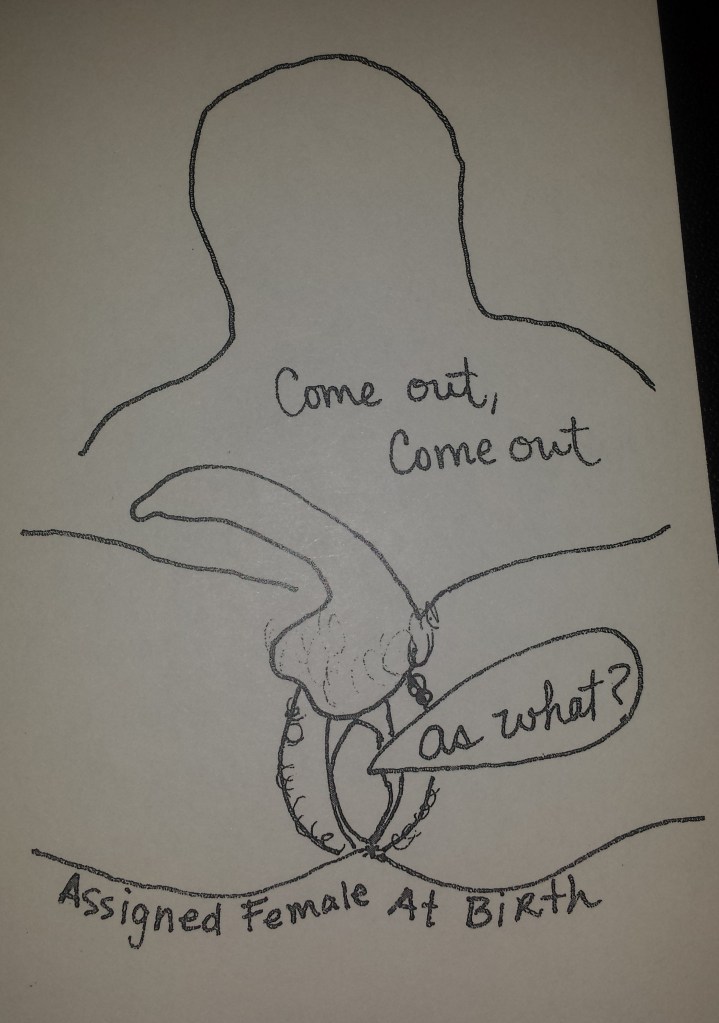 Come out,
Come out
as what?
Assigned Female At BiRth